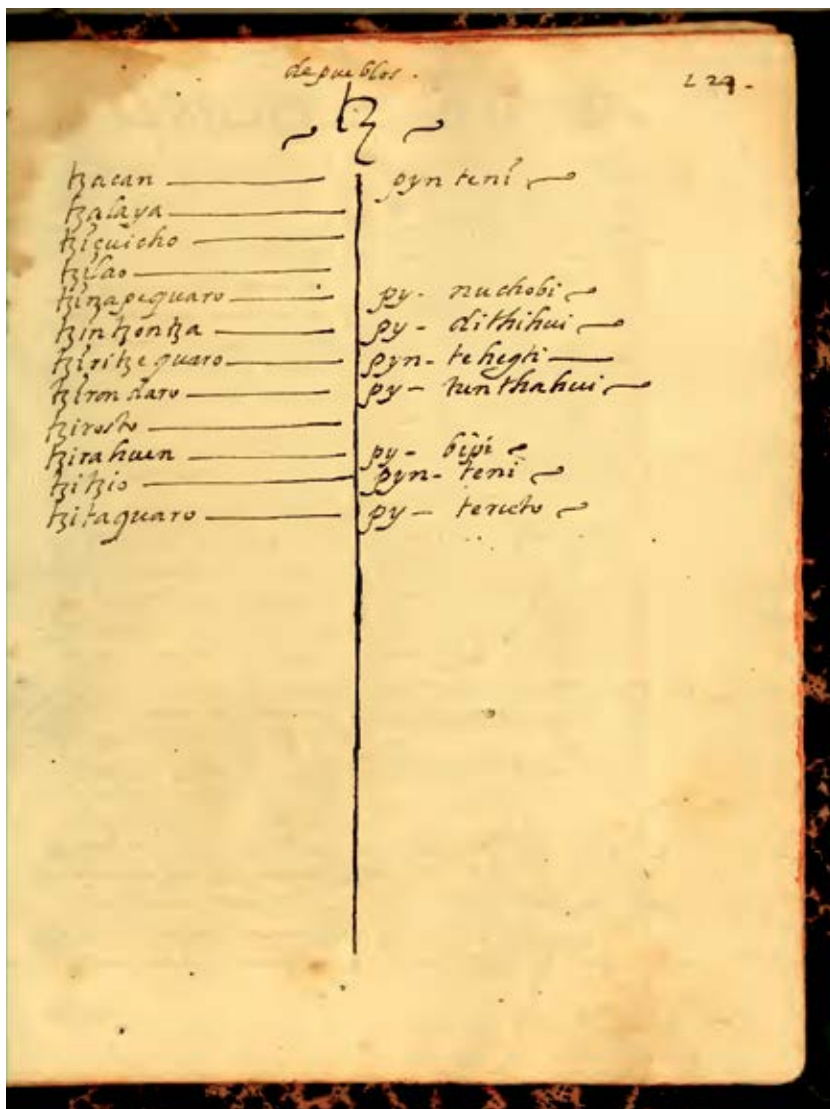 de pueblos.
229.
tz
tzacan pyn tení
tzalaya
tziçuicho
tzilao
tzinapequaro py- nuchobi
tzintzontza py- dithihui
tziritzequaro pyn- tehegti
tzirondaro py- tunthahui
tzirosto
tzirahuen py- bipi
tzitzio pyn- teni
tzitaquaro py- teructo